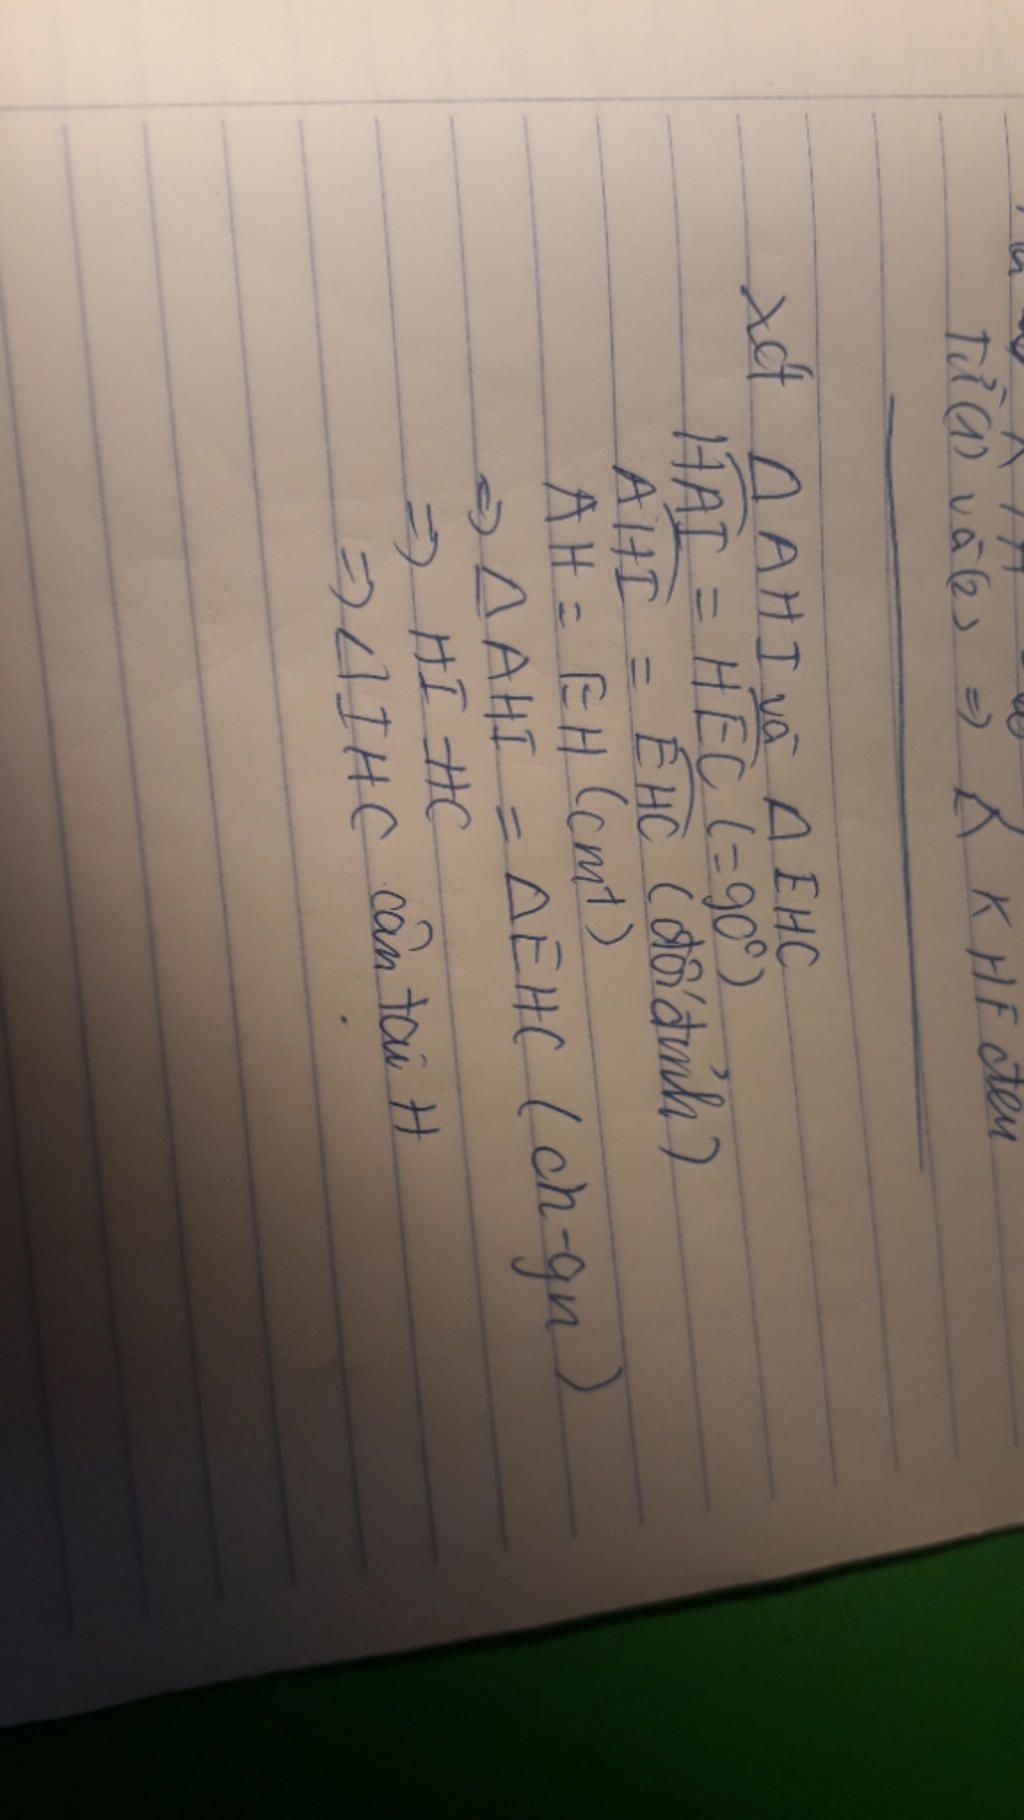 Từ (1) và (2) => K HF đều
Xét Δ AHI và Δ EHC
HAI = HEC (=90°)
AHI = EHC (đối đỉnh)
AH = EH (cmt)
=> Δ AHI = Δ EHC (ch-gn)
=> HI = HC
=> ΔIHC cân tại H